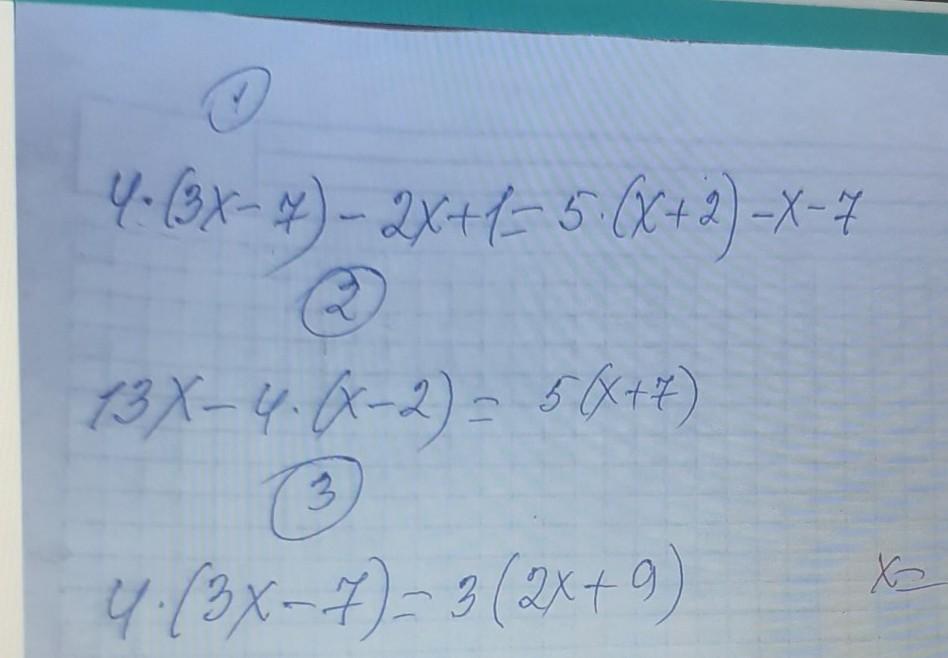 1
4·(3x-7)-2x+1=5·(x+2)-x-7
2
13x-4·(x-2)=5(x+7)
3
4·(3x-7)=3(2x+9)
x=